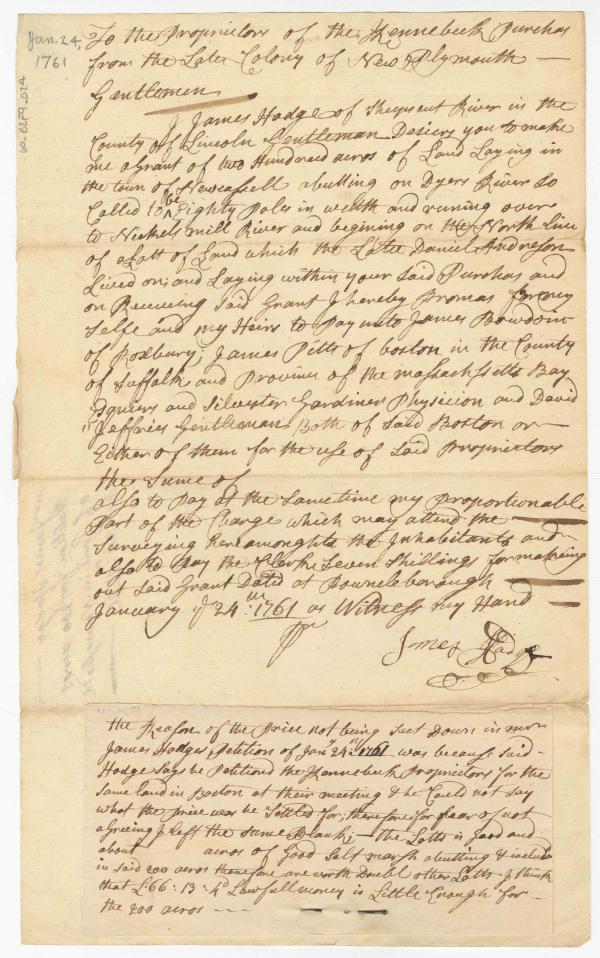 Jan. 24,
1761
60-B2F9-024
To the Proprietors of the Kennebeck Purchas
from the Late Colony of New Plymouth —
Gentlemen
I James Hodge of Sheepscut River in the
County of Lincoln Gentleman Desiers you to make
me a Grant of two Hundraid acros of Land Laying in
the town of Newcassell abutting on Dyers River So
Called to be Eighty Poles in weth and runing over
to Nickels mill River and begining on the North Line
of a Lott of Land which the Late Daniel Andreson
Lived on; and Laying within your Said Purchas and
on Receving Said Grant I hereby Promas for my
Selfe and my Heirs to Pay unto James Bowdoin
of Roxbury; James Pitts of boston in the County
of Suffolk and Province of the massachssetts Bay
Esquiers and Silvester Gardiner Physicion and David
Jeffries Gentleman Both of Said Boston or —
Either of them for the use of Said Proprietors
the Sume of
also to Pay at the Same time my Proportionable
Part of the Charge which may attend the —
Surveying Land amonghts the Inhabitants and —
also to Pay the Clerke Seven Shillings for making
out Said Grant Dated at Pownelborough
January ye 24:th 1761 as Witness my Hand —
James Hodge
the Reason of the Price not being Sect Down in mr
James Hodges Petition of Janry 24:th 1761 was becaus: said
Hodge says he Petitiond the Kannebeck Proprietors for the
same land in Boston at their meeting & he Could not say
what the price was he Setled for; therefore for fear of not
agreeing I left the same Blank; — the Lotts is Good and
about acros of Good Salt marsh abutting & includ
in said 200 acros therefore are worth Doubl other Lotts I think
that £66:13:4d Lawfull money is Little Enough for
the 200 acros —